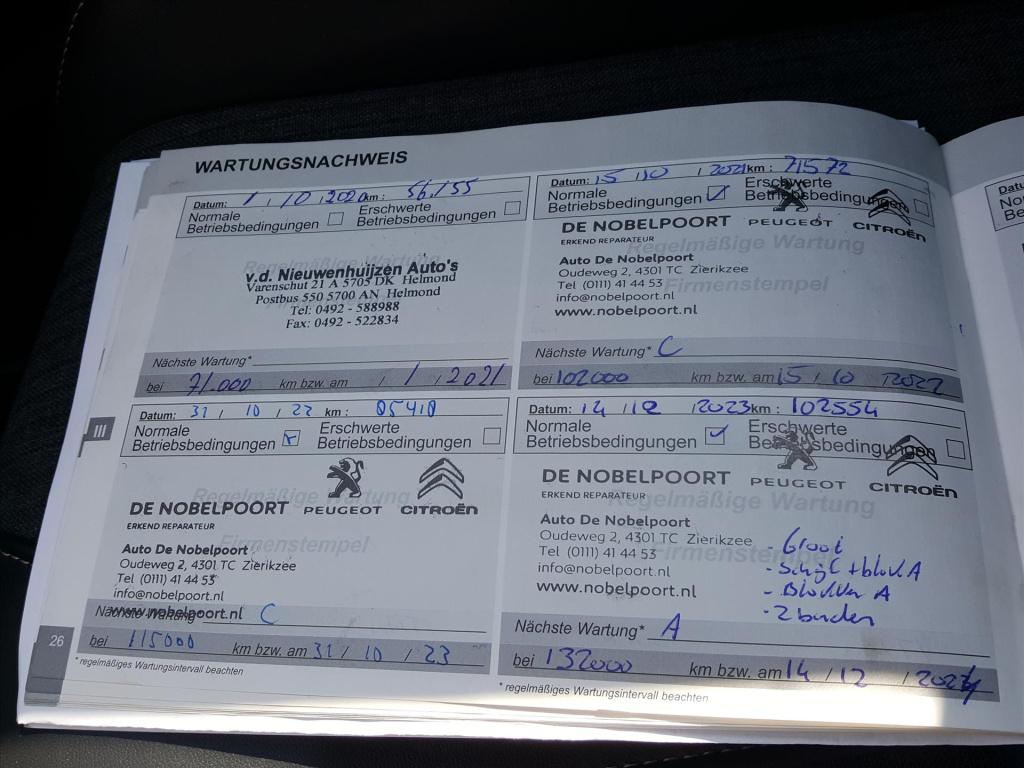 WARTUNGSNACHWEIS
Datum: 1 / 10 / 2020 km: 56.155
Normale Betriebsbedingungen
Erschwerte Betriebsbedingungen
Regelmäßige Wartung
v.d. Nieuwenhuijzen Auto's
Varenschut 21 A 5705 DK Helmond
Postbus 550 5700 AN Helmond
Tel: 0492 - 588988
Fax: 0492 - 522834
Nächste Wartung*
bei 71.000 km bzw. am / 1 / 2021
Datum: 15 / 10 / 2021 km: 71572
Normale Betriebsbedingungen
Erschwerte Betriebsbedingungen
DE NOBELPOORT PEUGEOT CITROËN
ERKEND REPARATEUR
Regelmäßige Wartung
Firmenstempel
Auto De Nobelpoort
Oudeweg 2, 4301 TC Zierikzee
Tel (0111) 41 44 53
info@nobelpoort.nl
www.nobelpoort.nl
Nächste Wartung* C
bei 102000 km bzw. am 15 / 10 / 2022
Datum: 31 / 10 / 22 km: 85410
Normale Betriebsbedingungen
Erschwerte Betriebsbedingungen
DE NOBELPOORT PEUGEOT CITROËN
ERKEND REPARATEUR
Regelmäßige Wartung
Firmenstempel
Auto De Nobelpoort
Oudeweg 2, 4301 TC Zierikzee
Tel (0111) 41 44 53
info@nobelpoort.nl
www.nobelpoort.nl
Nächste Wartung* C
bei 115000 km bzw. am 31 / 10 / 23
* regelmäßiges Wartungsintervall beachten
Datum: 14 / 12 / 2023 km: 102554
Normale Betriebsbedingungen
Erschwerte Betriebsbedingungen
DE NOBELPOORT PEUGEOT CITROËN
ERKEND REPARATEUR
Regelmäßige Wartung
Firmenstempel
Auto De Nobelpoort
Oudeweg 2, 4301 TC Zierikzee
Tel (0111) 41 44 53
info@nobelpoort.nl
www.nobelpoort.nl
- Groot
- Schijf + blok A
- Blokken A
- 2 banden
Nächste Wartung* A
bei 132000 km bzw. am 14 / 12 / 2024
* regelmäßiges Wartungsintervall beachten
III
26